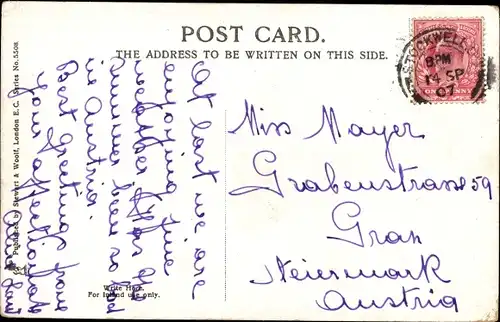 POST CARD.
THE ADDRESS TO BE WRITTEN ON THIS SIDE.
STOCKWELL
8 PM
14 SP
07
ONE PENNY
At last we are
enjoying fine
weather. Has the
summer been so bad
in Austria.
Best greetings from
your affectionate
Miss Mayer
Grabenstrasse 59
Graz
Steiermark
Austria
Write Here.
For Inland use only.
Published by Stewart & Woolf, London E.C. Series No. 5508